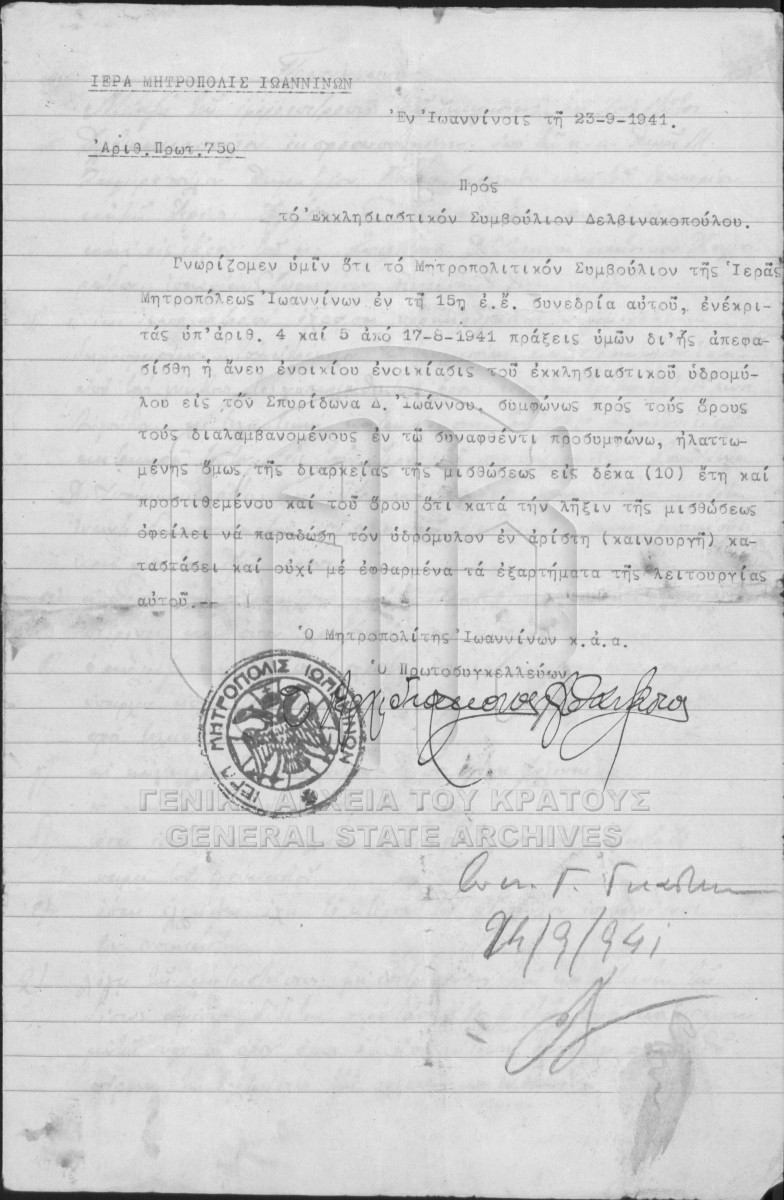 ΙΕΡΑ ΜΗΤΡΟΠΟΛΙΣ ΙΩΑΝΝΙΝΩΝ
Ἐν Ἰωαννίνοις τῇ 23-9-1941.
Ἀριθ.Πρωτ.750
Πρός
τό Ἐκκλησιαστικόν Συμβούλιον Δελβινακοπούλου.
Γνωρίζομεν ὑμῖν ὅτι τό Μητροπολιτικόν Συμβούλιον τῆς Ἱερᾶς
Μητροπόλεως Ἰωαννίνων ἐν τῇ 15ῃ ἐ.ἔ. συνεδρίᾳ αὐτοῦ, ἐνέκρι-
τάς ὑπ'ἀριθ. 4 καί 5 ἀπό 17-8-1941 πράξεις ὑμῶν δι'ἧς ἀπεφα-
σίσθη ἡ ἄνευ ἐνοικίου ἐνοικίασις τοῦ ἐκκλησιαστικοῦ ὑδρομύ-
λου εἰς τόν Σπυρίδωνα Δ. Ἰωάννου, συμφώνως πρός τούς ὅρους
τούς διαλαμβανομένους ἐν τῷ συναφθέντι προσυμφώνῳ, ἠλαττω-
μένης ὅμως τῆς διαρκείας τῆς μισθώσεως εἰς δέκα (10) ἔτη καί
προστιθεμένου καί τοῦ ὅρου ὅτι κατά τήν λῆξιν τῆς μισθώσεως
ὀφείλει νά παραδώσῃ τόν ὑδρόμυλον ἐν ἀρίστῃ (καινουργῆ) κα-
ταστάσει καί οὐχί μέ ἐφθαρμένα τά ἐξαρτήματα τῆς λειτουργίας
αὐτοῦ.--
Ὁ Μητροπολίτης Ἰωαννίνων κ.ἀ.α.
Ὁ Πρωτοσυγκελλεύων
ΙΕΡΑ ΜΗΤΡΟΠΟΛΙΣ ΙΩΑΝΝΙΝΩΝ
ΓΕΝΙΚΑ ΑΡΧΕΙΑ ΤΟΥ ΚΡΑΤΟΥΣ
GENERAL STATE ARCHIVES
24/9/941